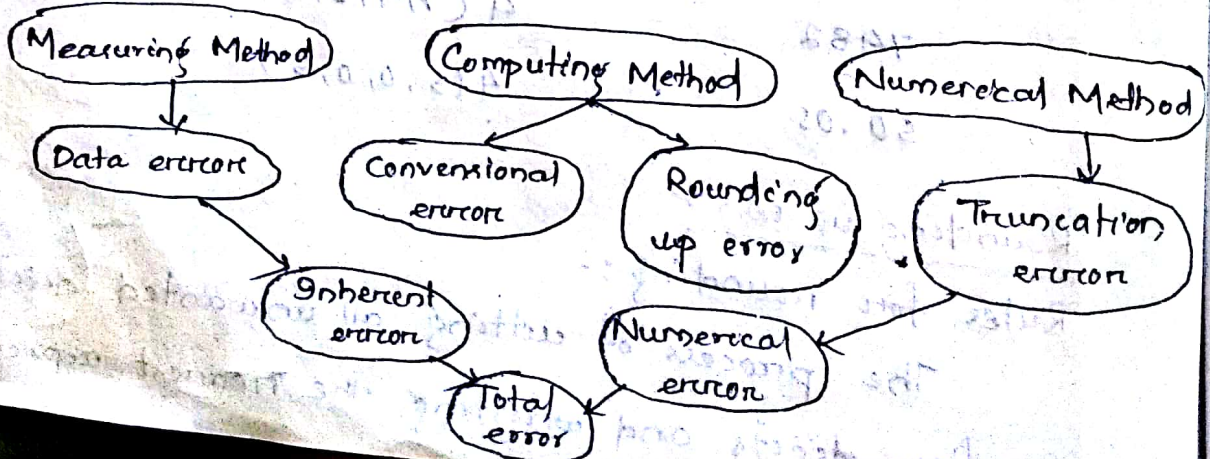 Measuring Method
Computing Method
Numerecal Method
Data ercrcorc
Convensional
ercrcorc
Roundcng
up error
Truncation
ercrcorc
Inherent
ercrcorc
Numerecal
ercrcorc
Total
error